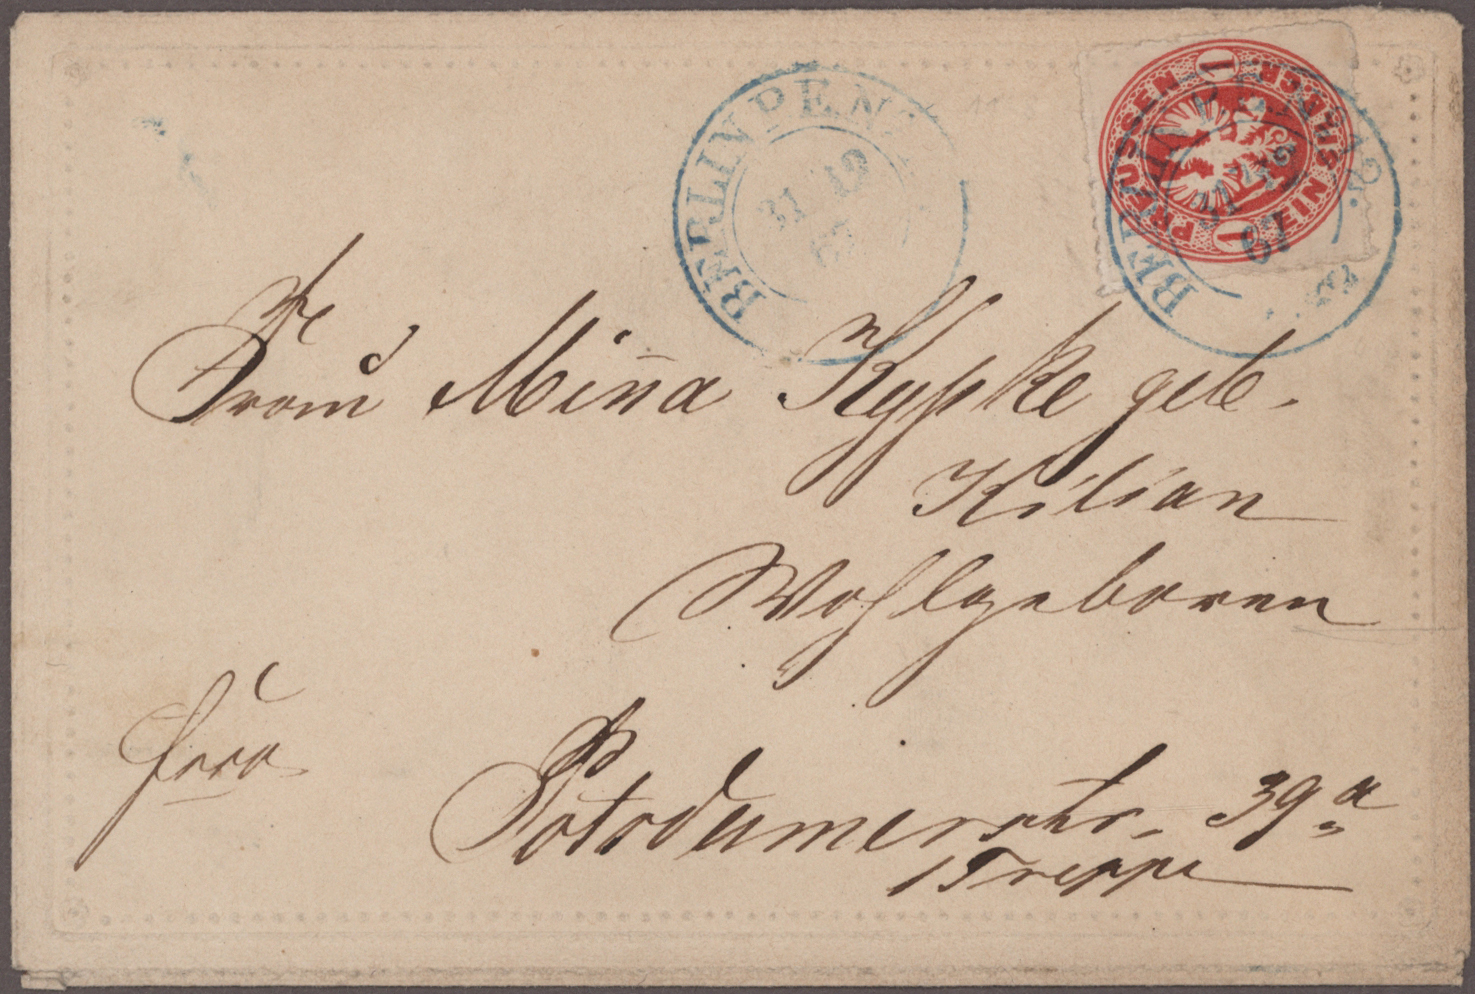 BERLIN P.EN
31 12
67
PREUSSEN 1 SILB.GR. EIN 1
BERLIN
31 12
67
Frau Minna Kypke geb.
Kilian
Wohlgeboren
Potsdamerstr. 39a
1 Treppe